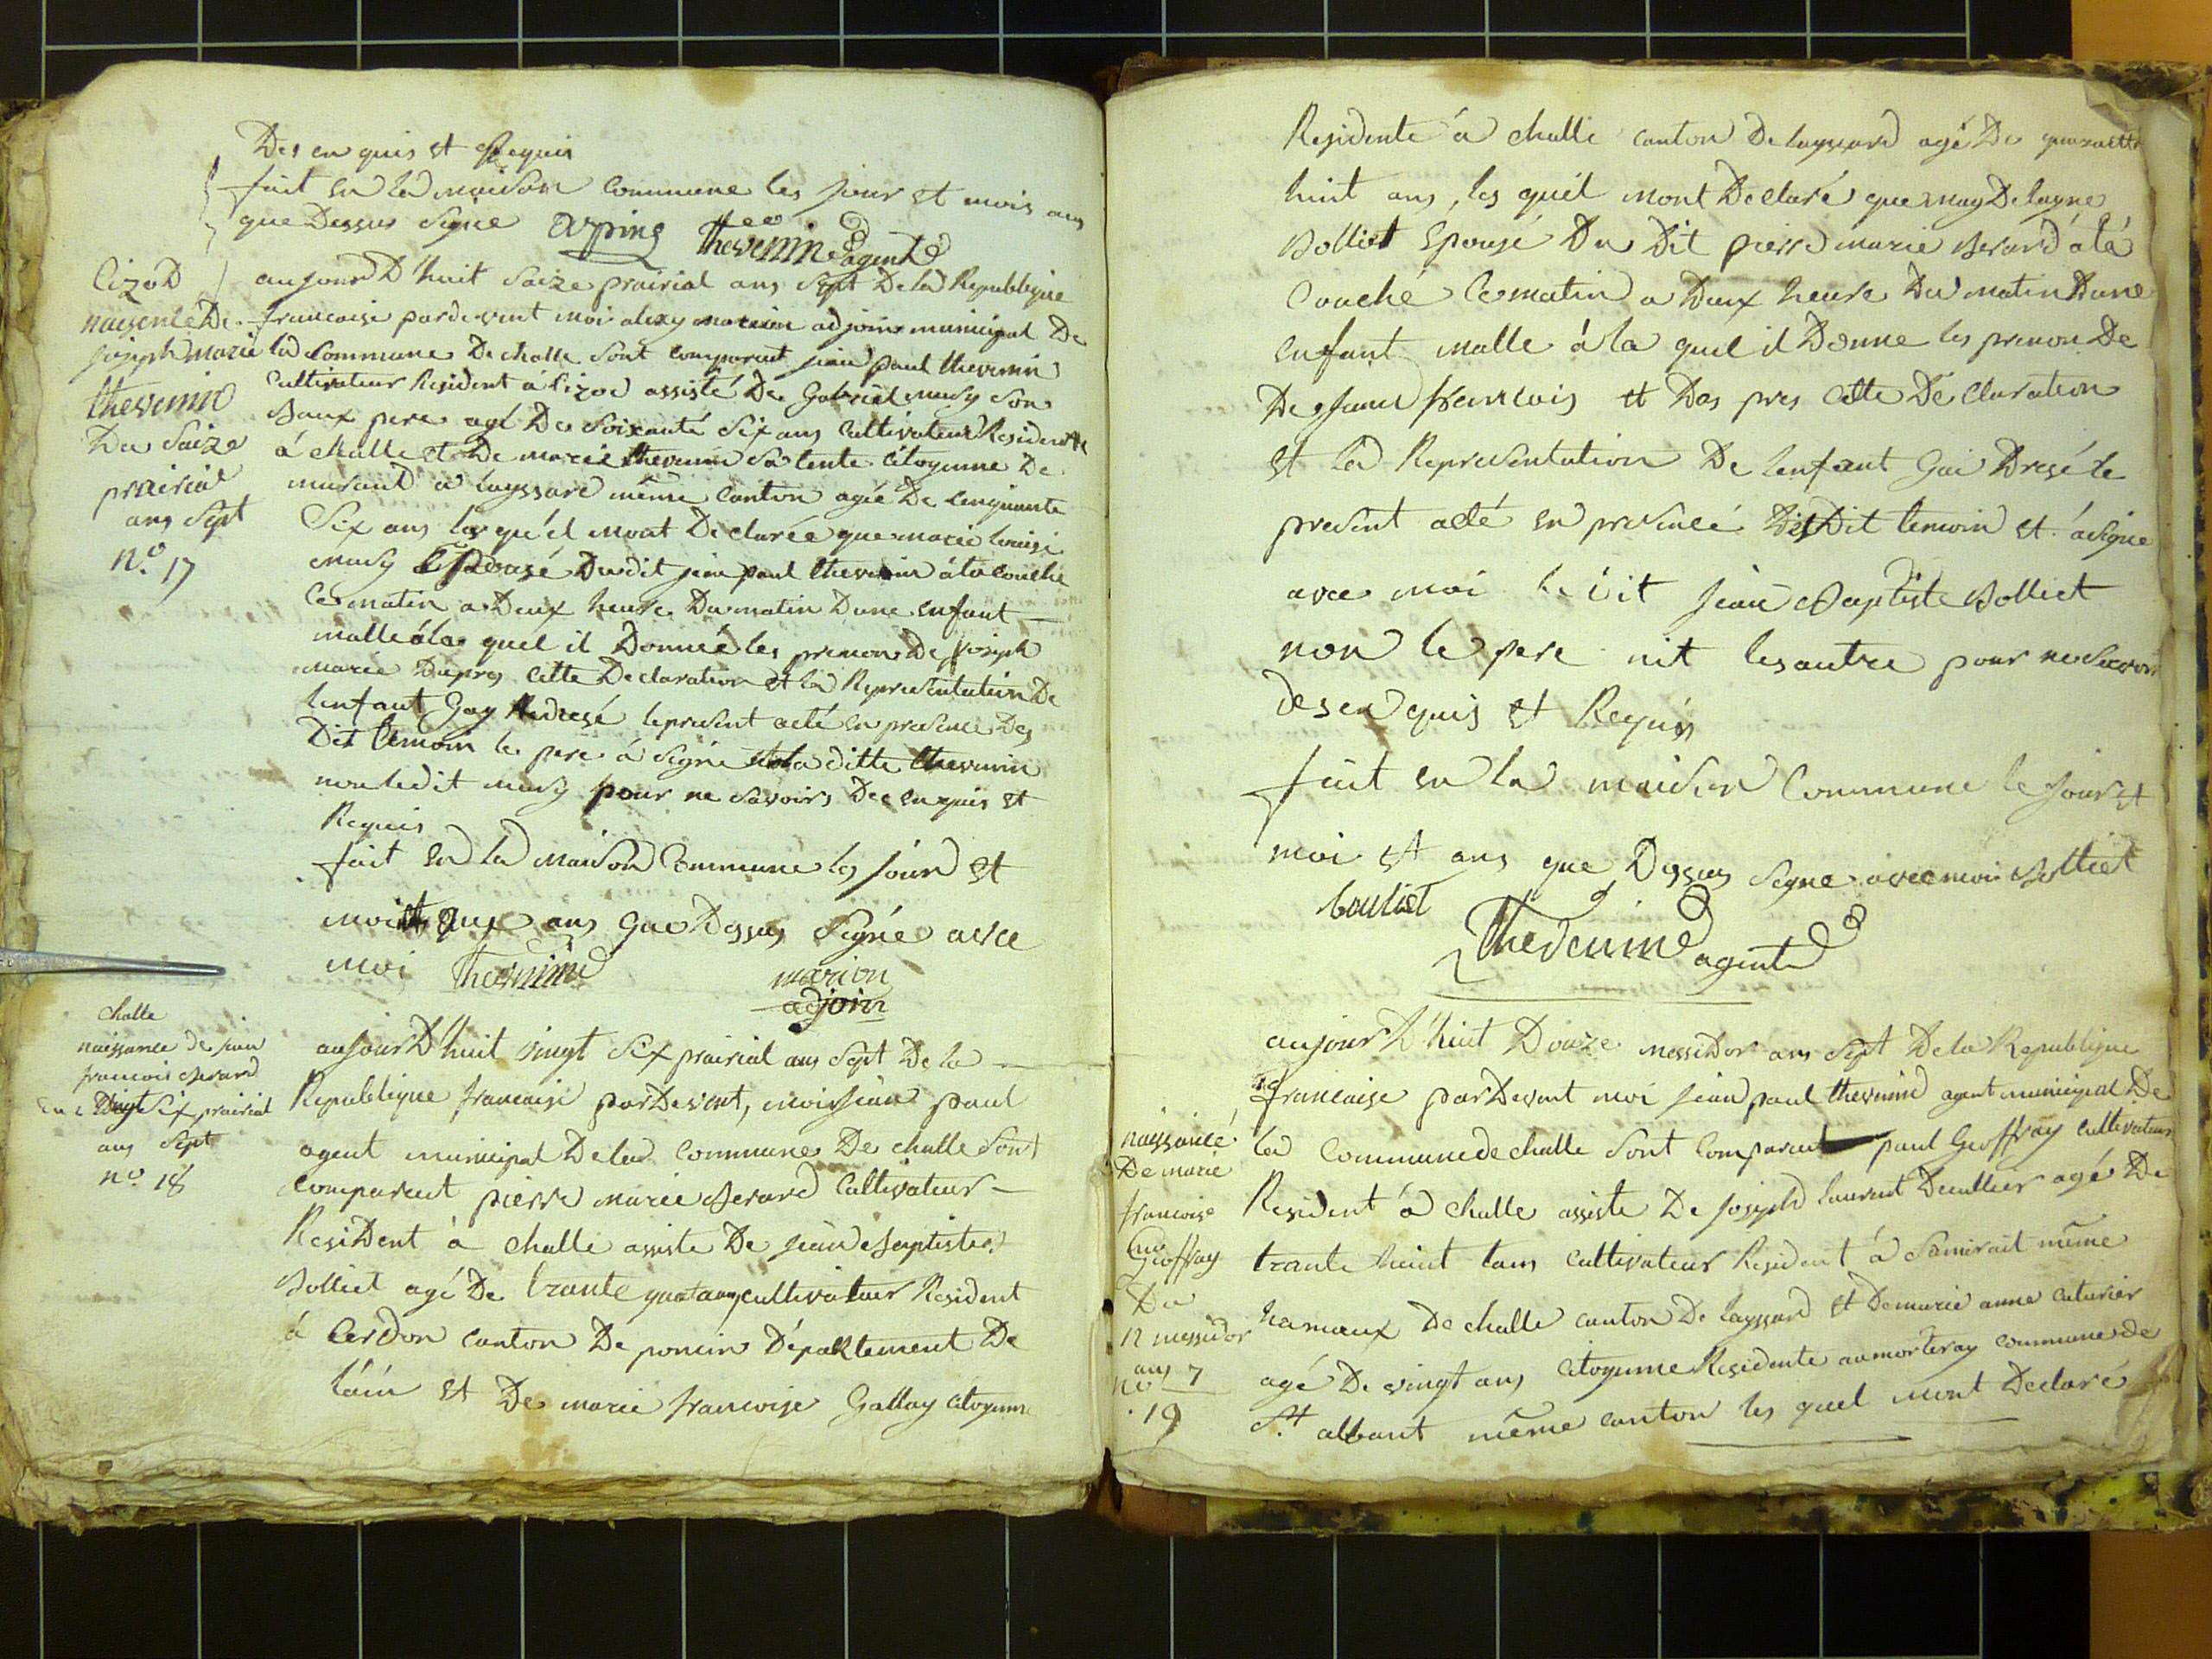 Des en quis et Requis
fait en la maison commune les jour et mois ans
que Dessus Signé arpins thevenin agent
Cizod
naisence De
joseph marie
thevenin
Du Saize
prairial
ans Sept
N.o 17
aujourD'huit Saize prairial ans Sept De la Republique
francaise pardevent moi alexy marion adjoin municipal De
la Commune De challe Sont comparent jean paul thevenin
Cultivateur Resident á Cizod assisté De Gabriel musy Son
Baux pere agé De Soixanté Six ans Cultivateur Residente
á challe et De marie thevenin Sa tente Citoyenne De
murand á layssard même Canton agée De Cenquante
Six ans les qu'el mont Declarée que marie louise
musy Epousé Dudit jean paul thevenin á la couche
Ce matin a Deux heure Du matin Dune enfant
malle á la quel il Donneé les prenons De joseph
marie Dapres Cette Declaration et la Representation De
lenfant Gay Redresé le present acté en presence Des
Dit temoin le pere á Signé et la ditte thevenin
non ledit musy pour ne Savoirs Dee enquis et
Requis
fait en la maison Commune les jour et
mois ans que Dessus Signé avec
moi Thevenin marion
adjoin
challe
naissance de jean
francois Berard
vingt Six prairial
ans Sept
n.o 18
aujourD'huit vingt Six prairial ans Sept De la
Republique francaise parDevent, moi jean paul
agent municipal De la Commune De challe Sont
comparent pierre marie Berard Cultivateur
ResiDent á challe assiste De jean Baptiste
Bolliet agé De trante quatans cultivateur Resident
á CerDon canton De poncin Département De
láin et De marie francoise Gallay Citoyenne
Residente á challe canton De layssard agé De quarante
huit ans, les quél mont Declaré que
Bolliet Epousé Du Dit pierre marie Berard á la
Couché Ce matin a Deux heure Du matin Dune
enfant malle á la quel il Donne les prenon De
De jean francois et Das pres Cette DeClaration
et la Representation De lenfant Gai Dresé le
present acté en presencé DisDit temoin et á Signe
avec moi le dit jean Baptiste Bolliet
non le pere nit les autre pour ne Savoir
des en quis et Requis
fait en la maison Commune le jour et
moi et ans que Dessus Signe avec moi Bolliet
bouliet
Thevenin agent
naissancé
De marie
francoise
Geoffray
Du
12 messidor
ans 7
no
19
aujourD'huit Douze messiDor ans Sept De la Republique
francaise parDevent moi jean paul thevenin agent municipal De
la Commune de challe Sont Comparent paul Geoffray cultivateur
Resident á challe assiste De joseph laurent Deullier agé De
trante huint tans cultivateur Resident á Samirait même
hameaux De challe canton De layssard et De marie anne Cuturier
agé De vingt ans Citoyenne Residente au morteray commune de
St. albant même canton les quel mont Declaré